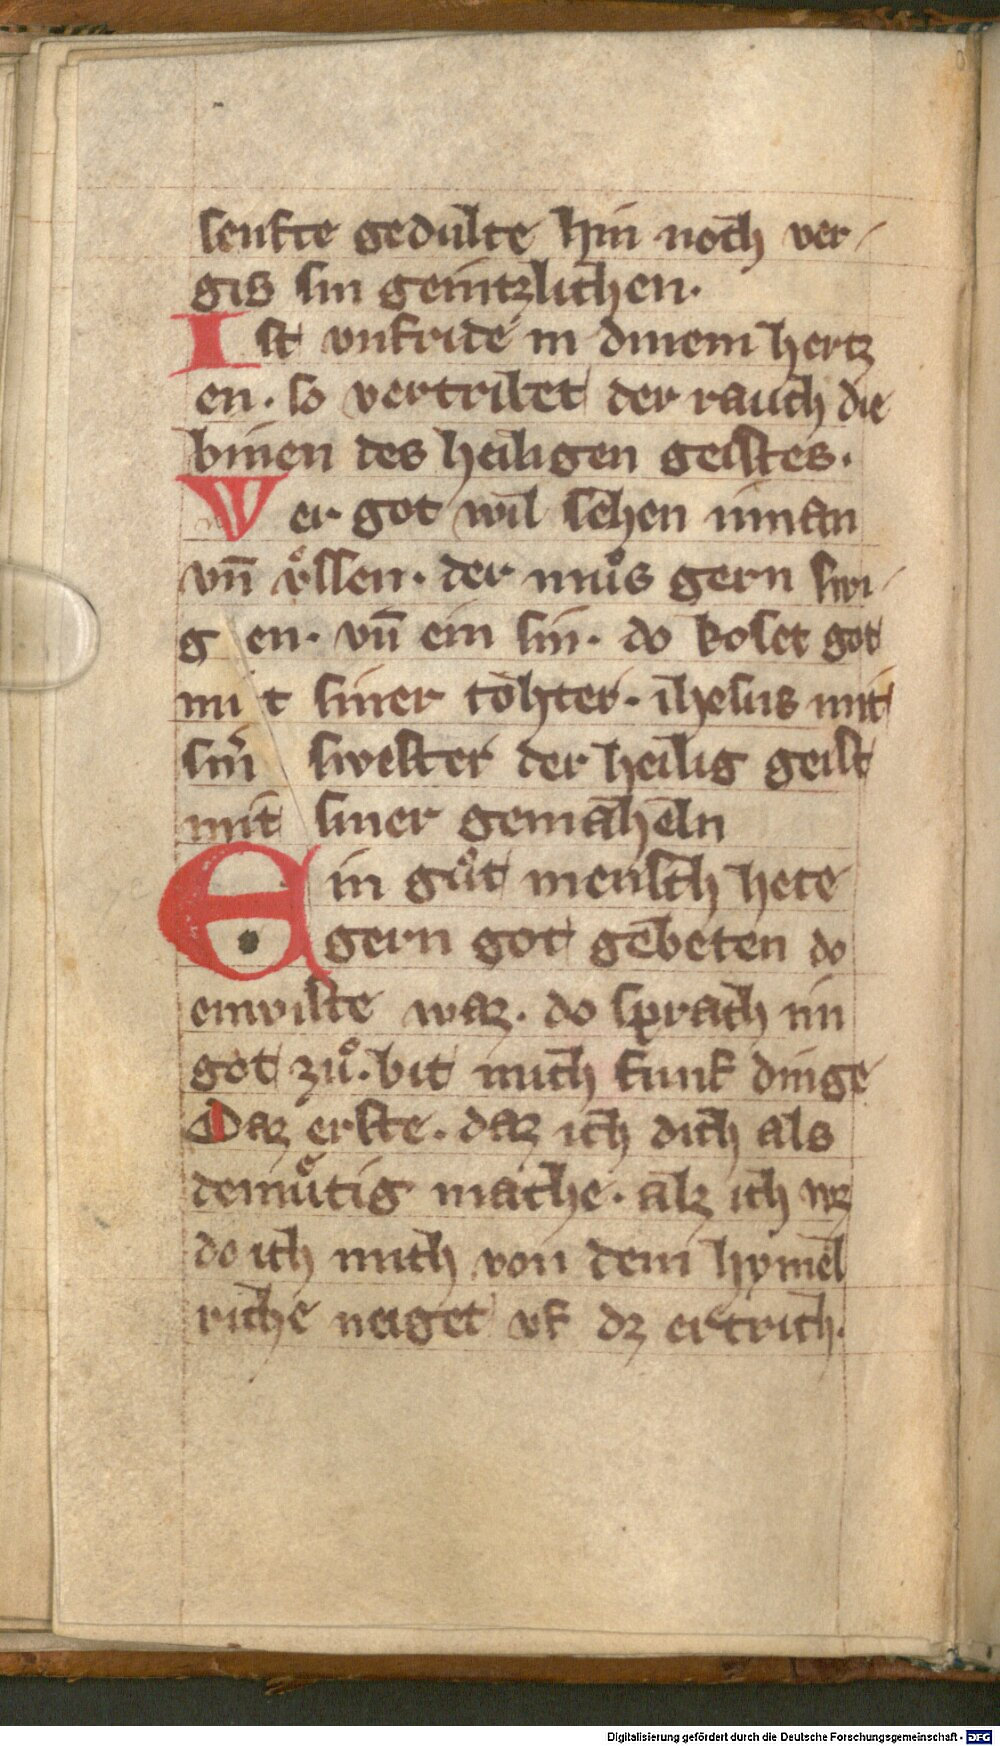 senfte gedulte hin noch ver-
gis sin genitzlichen.
Ist vnfride in dinem hertz
en. so vertribet der rauch die
binen des heiligen geistes.
Wer got wil sehen innan
vn̄ vͦssen. der muͦs gern swi-
gen. vn̄ ein sin. do koset got
mit siner tohter. ihesus mit
sin̄ swester der heilig geist
mit siner gemaheln
Ein guͦt mensch hete
gern got gebeten do
enwiste waz. do sprach im
got zuͦ. bit mich funf dinge
Daz erste. daz ich dich als
demuͤtig mache. alz ich wz
do ich mich von dem hymel
riche neiget vf dz ertrich.
Digitalisierung gefördert durch die Deutsche Forschungsgemeinschaft - DFG